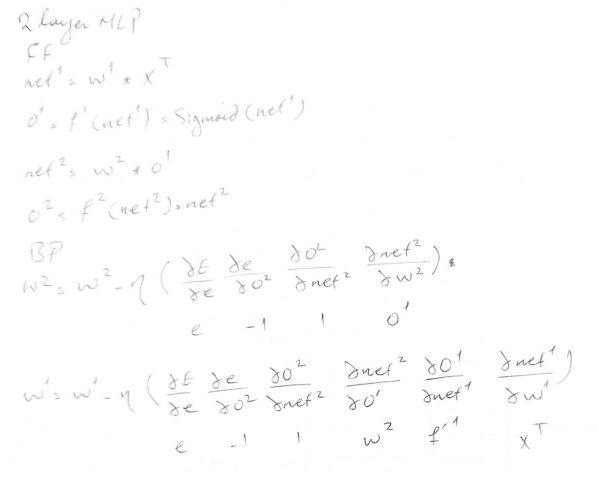 2 layer MLP
FF
net¹ = w¹ * X^T
o¹ = f¹(net¹) = Sigmoid(net¹)
net² = w² * o¹
o² = f²(net²) = net²
BP
w² = w² - η ( ∂E/∂e ∂e/∂o² ∂o²/∂net² ∂net²/∂w² ) .
e -1 1 o¹
w¹ = w¹ - η ( ∂E/∂e ∂e/∂o² ∂o²/∂net² ∂net²/∂o¹ ∂o¹/∂net¹ ∂net¹/∂w¹ )
e -1 1 w² f'¹ X^T